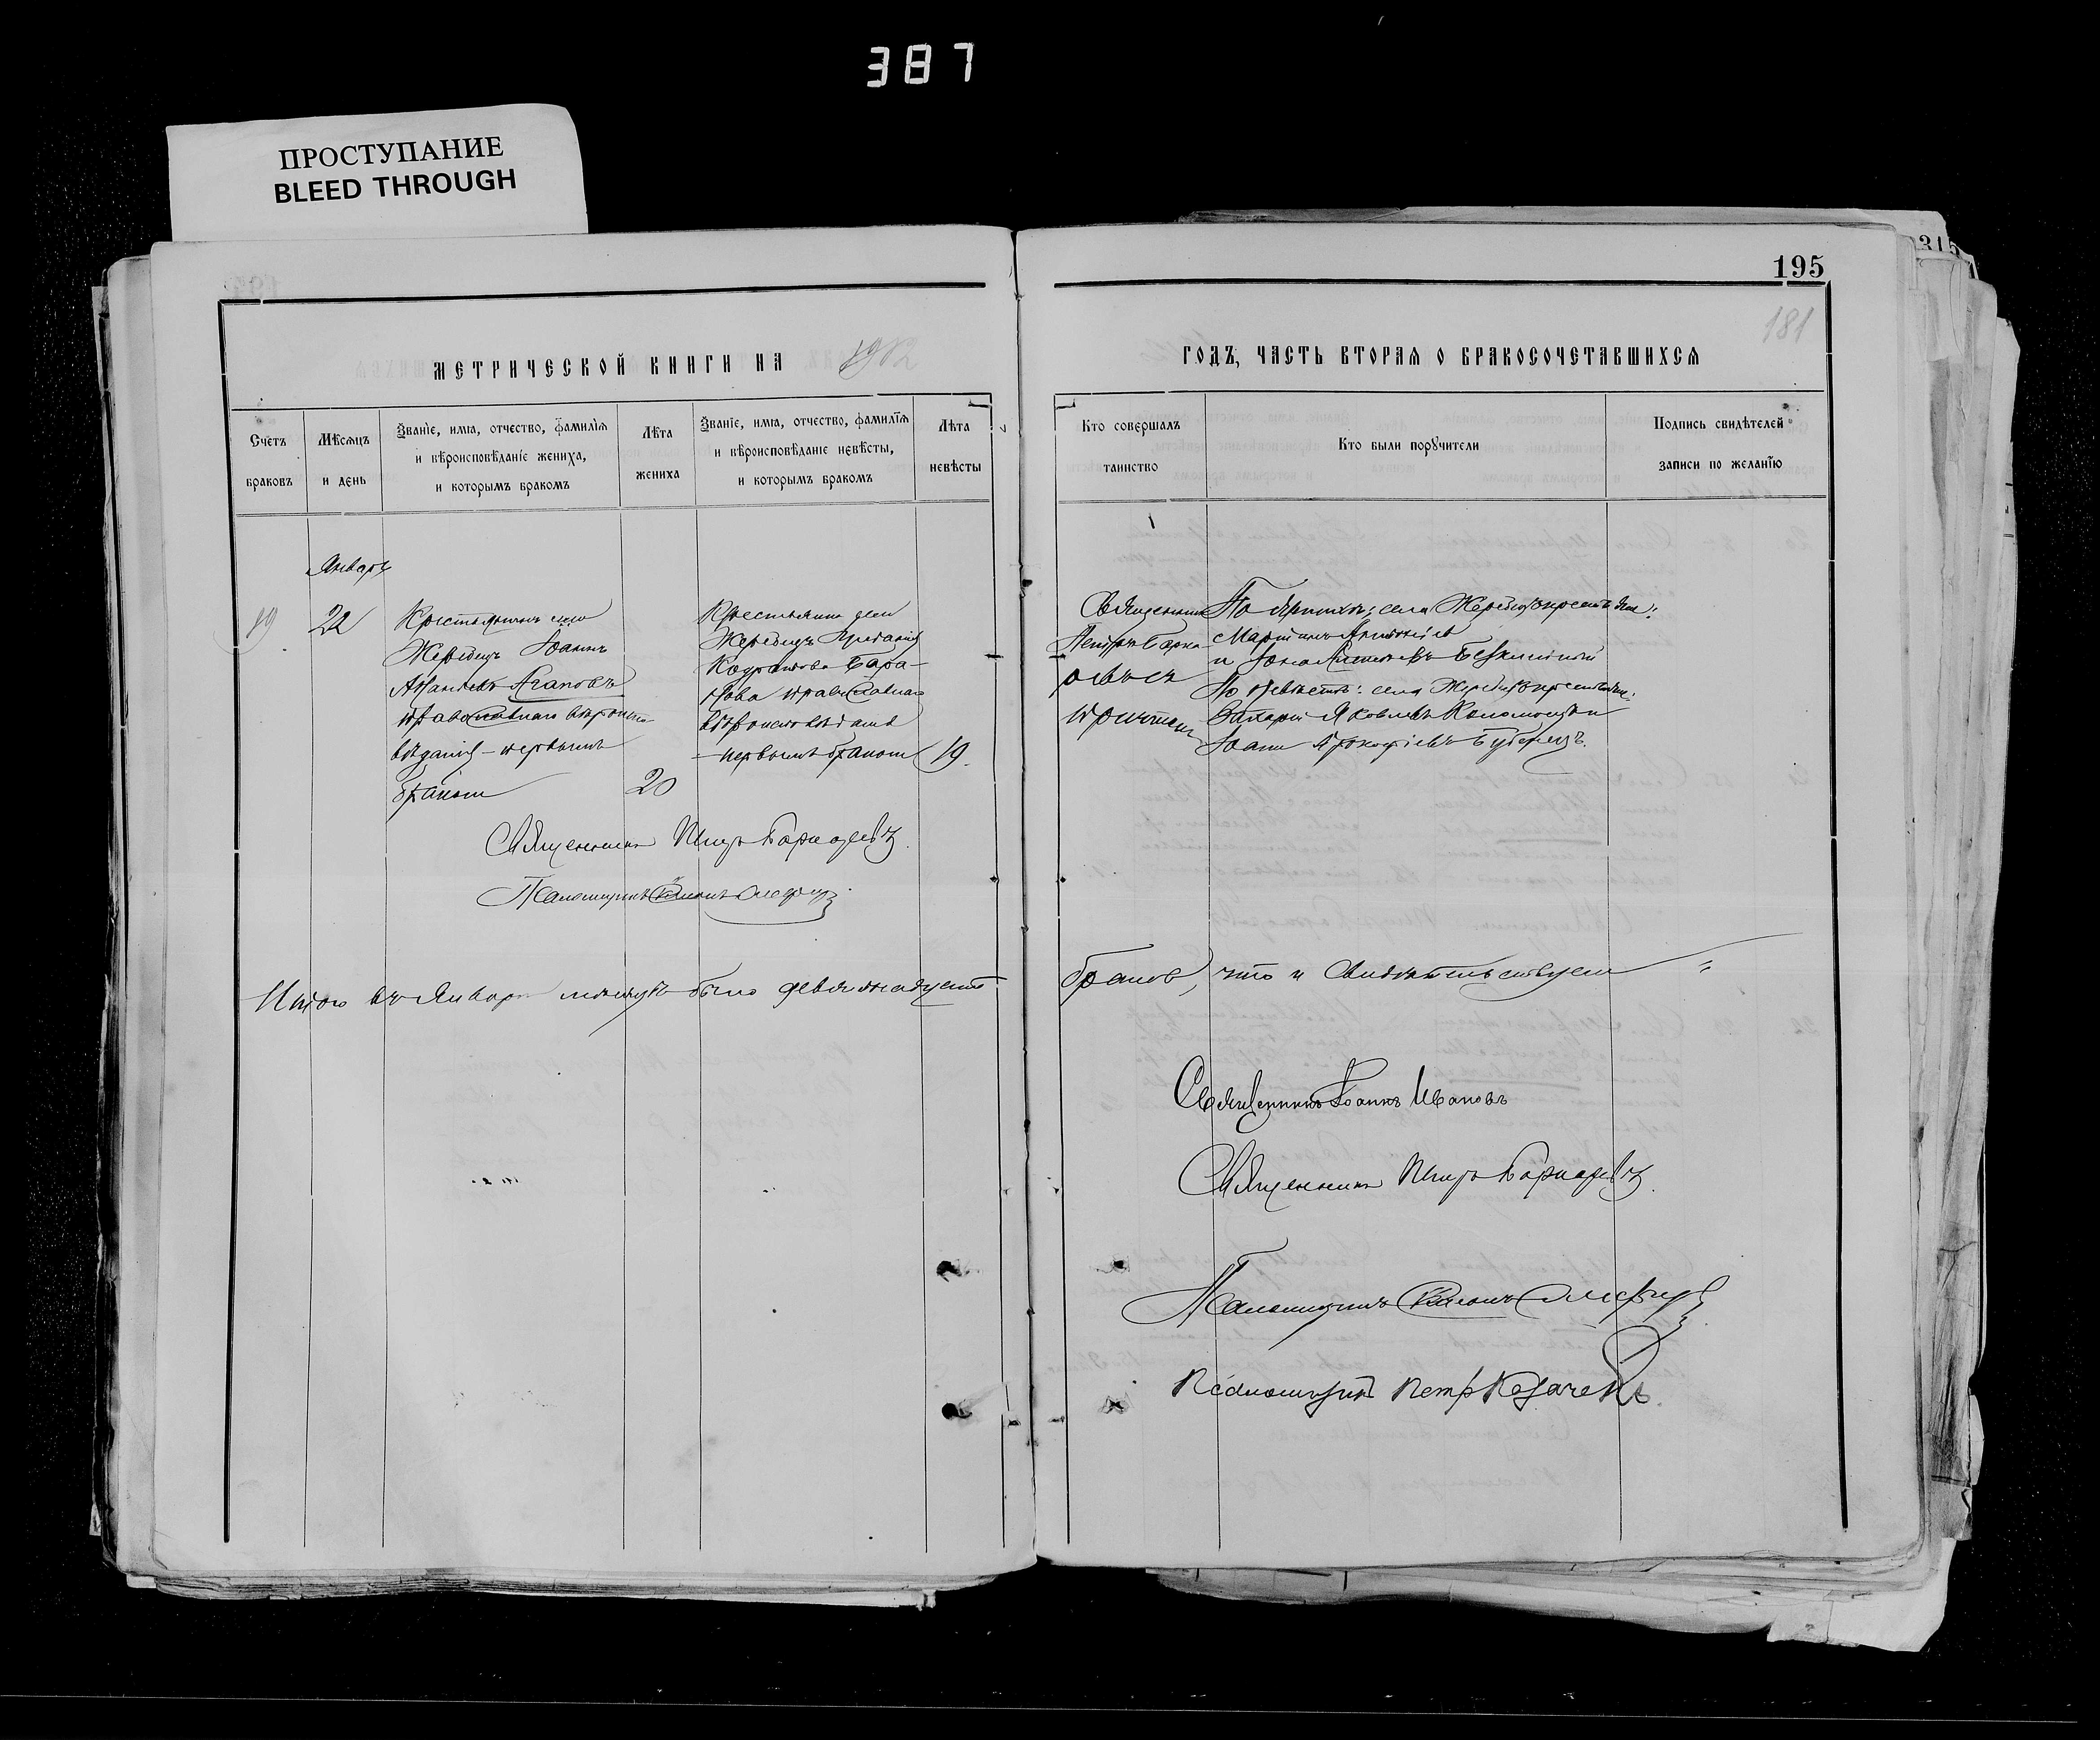 387
ПРОСТУПАНИЕ
BLEED THROUGH
315
195
181
МЕТРИЧЕСКОЙ КНИГИ НА 1912
ГОДЪ, ЧАСТЬ ВТОРАЯ О БРАКОСОЧЕТАВШИХСЯ
Счетъ браковъ
Мѣсяцъ и день
Званіе, имя, отчество, фамилія
и вѣроисповѣданіе жениха,
и которымъ бракомъ
Лѣта жениха
Званіе, имя, отчество, фамилія
и вѣроисповѣданіе невѣсты,
и которымъ бракомъ
Лѣта невѣсты
Кто совершалъ
таинство
Кто были поручители
Подпись свидѣтелей
записи по желанію
Январь
19
22
Крестьянинъ села
Жеребецъ Іоаннъ
Агаповъ
православнаго вѣроиспо-
вѣданія - первымъ
бракомъ
20
села
Жеребецъ
Бара-
нова православнаго
вѣроисповѣданія
- первымъ бракомъ
19.
Священникъ
Петръ
причтомъ
По женихѣ: села Жеребецъ крестьяне:
Мартинъ
и
По невѣстѣ: села Жеребецъ крестьяне:
Захарій Яковлевъ Коломоецъ и
Іоаннъ Прокофіевъ
Священникъ Петръ
Псаломщикъ
Итого въ Январѣ мѣсяцѣ было девятнадцать
браковъ, что и свидѣтельствуемъ
Священникъ Іоаннъ Ивановъ
Священникъ Петръ
Псаломщикъ
Псаломщикъ Петръ Козачекъ